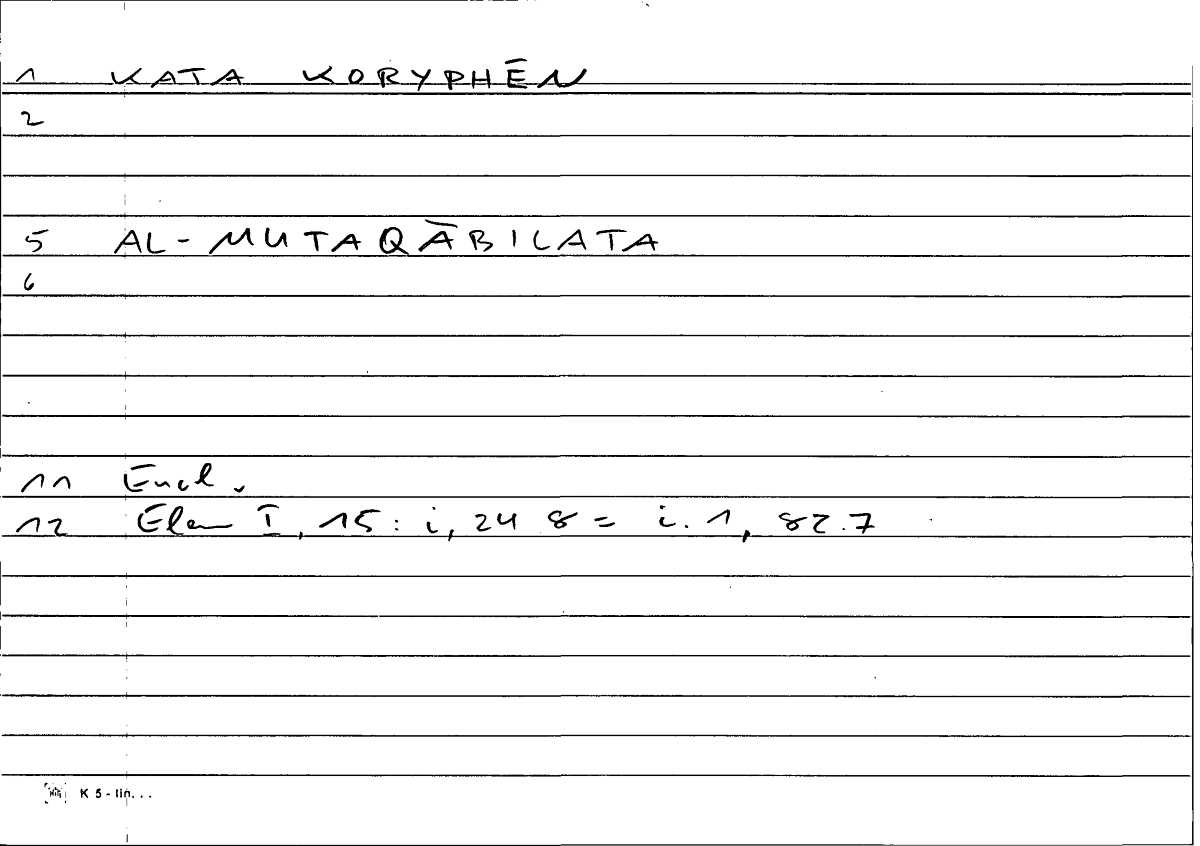 1 KATA KORYPHĒN
2
5 AL-MUTAQĀBILATA
6
11 Eucl.
12 Elem I, 15: i, 24 8 = i.1, 82.7
K 5 - lin...